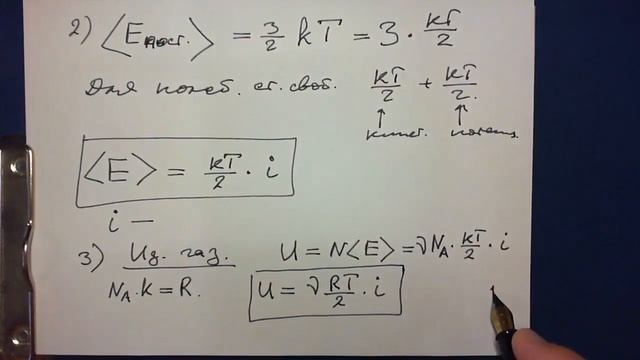 2) ⟨E пост.⟩ = 3/2 kT = 3 · kT/2
Для колеб. ст. своб. kT/2 + kT/2
↑ ↑
кинет. потенц.
⟨E⟩ = kT/2 · i
i —
3) Ид. газ. U = N⟨E⟩ = νN_A · kT/2 · i
N_A · k = R. U = ν RT/2 · i